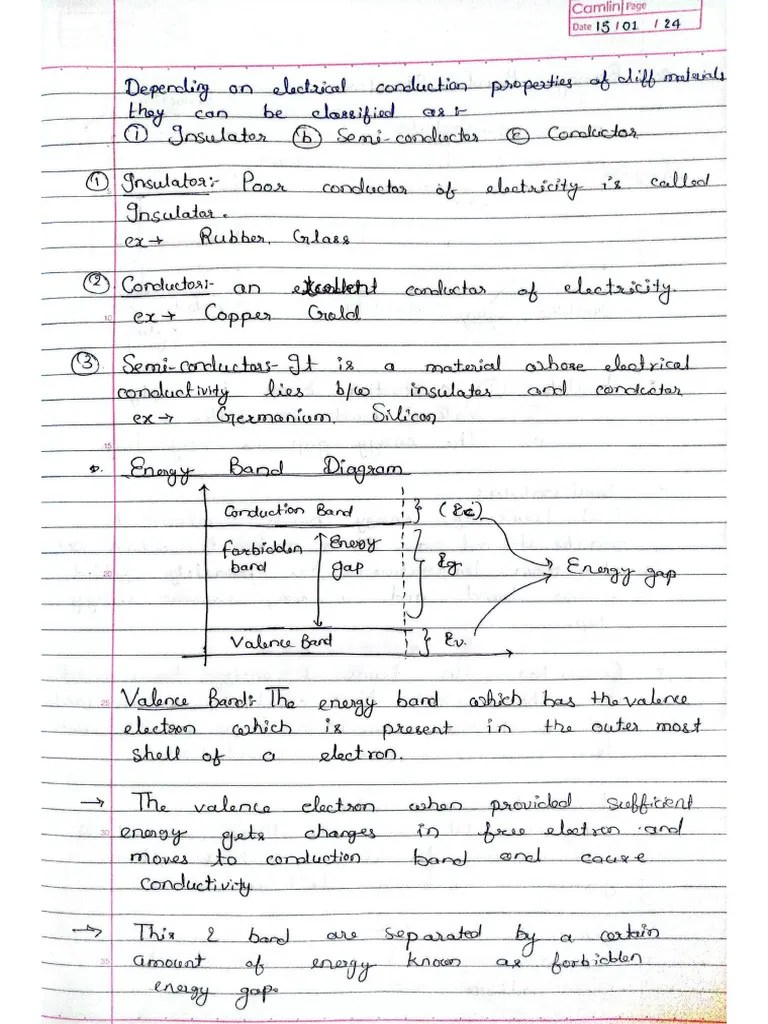 Camlin Page
Date 15 / 01 / 24
Depending on electrical conduction properties of diff materials
they can be classified as :-
① Insulator ⓑ Semi-conductor ⓒ Conductor
① Insulator:- Poor conductor of electricity is called
Insulator.
ex → Rubber, Glass
② Conductor:- an excellent conductor of electricity.
10
ex → Copper Gold
③ Semi-conductors- It is a material whose electrical
conductivity lies b/w insulator and conductor
ex → Germanium, Silicon
15
Energy Band Diagram
Conduction Band } (Ec)
forbidden band Energy gap Eg Energy gap
20
Valence Band } Ev
25
Valence Band:- The energy band which has the valence
electron which is present in the outer most
shell of a electron.
→ The valence electron when provided sufficient
30
energy gets changes in free electron and
moves to conduction band and cause
conductivity
→ This 2 band are separated by a certain
35
amount of energy known as forbidden
energy gap.